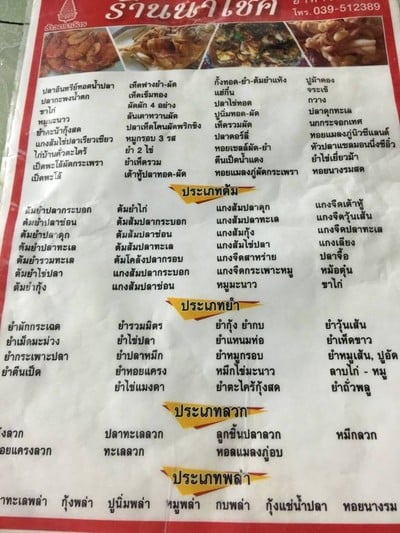 ร้านนำโชค
โทร. 039-512389
ปลาอินทรีย์ทอดน้ำปลา เห็ดฟางยำ-ผัด กุ้งทอด-ยำ-ต้มยำแห้ง ปูผัดดอง
ปลากะพงน้ำตก เห็ดเข็มทอง แฮ่กึ๋น จระเข้
ขาไก่ ผัดผัก 4 อย่าง ปลาไข่ทอด กวาง
หมูมะนาว ลันเตาหวานผัด ปูนิ่มทอด-ผัด ปลาดุกทะเล
ยำคะน้ากุ้งสด ปลาเห็ดโคนผัดพริกขิง เห็ดรวมผัด นกกระจอกเทศ
แกงส้มไข่ปลาเรียวเซียว หมูกรอบ 3 รส ปลาดอรี่ หอยแมลงภู่นิวซีแลนด์
ไก่บ้านคั่วตะไคร้ ยำ 2 ไข่ หอยเชลล์ผัด-ยำ หัวปลาแซลมอนนึ่งซีอิ้ว
เป็ดพะโล้ผัดกระเพรา ยำเห็ดรวม ตีนเป็ดน้ำแดง ยำไข่เยี่ยวม้า
เป็ดพะโล้ เต้าหู้ปลาทอด-ผัด หอยแมลงภู่ผัดกระเพรา หอยนางรมสด
ประเภทต้ม
ต้มยำปลากระบอก ต้มยำไก่ แกงส้มปลาดุก แกงจืดเต้าหู้
ต้มยำปลาช่อน ต้มส้มปลากระบอก แกงส้มปลาทะเล แกงจืดวุ้นเส้น
ต้มยำปลาดุก ต้มส้มปลาช่อน แกงส้มกุ้ง แกงจืดปลาทะเล
ต้มยำปลาทะเล ต้มส้มปลาทะเล แกงส้มไข่ปลา แกงเลียง
ต้มยำรวมทะเล ต้มโคล้งปลากรอบ แกงจืดสาหร่าย ปลาจื้อ
ต้มยำไข่ปลา แกงส้มปลากระบอก แกงจืดกระเพาะหมู หม้อตุ๋น
ต้มยำกุ้ง แกงส้มปลาช่อน หมูมะนาว ขาไก่
ประเภทยำ
ยำผักกระเฉด ยำรวมมิตร ยำกุ้ง ยำกบ ยำวุ้นเส้น
ยำเม็ดมะม่วง ยำไข่ปลา ยำแหนมท่อ ยำเห็ดขาว
ยำกระเพาะปลา ยำปลาหมึก ยำหมูกรอบ ยำหมูเส้น, ปูอัด
ยำตีนเป็ด ยำหอยแครง หมึกไข่มะนาว ลาบไก่ - หมู
ยำไข่แมงดา ยำตะไคร้กุ้งสด ยำถั่วพลู
ประเภทลวก
กุ้งลวก ปลาทะเลลวก ลูกชิ้นปลาลวก หมึกลวก
หอยแครงลวก ทะเลลวก หอลแมลงภู่อบ
ประเภทพล่า
ปลาทะเลพล่า กุ้งพล่า ปูนิ่มพล่า หมูพล่า กบพล่า กุ้งแช่น้ำปลา หอยนางรม